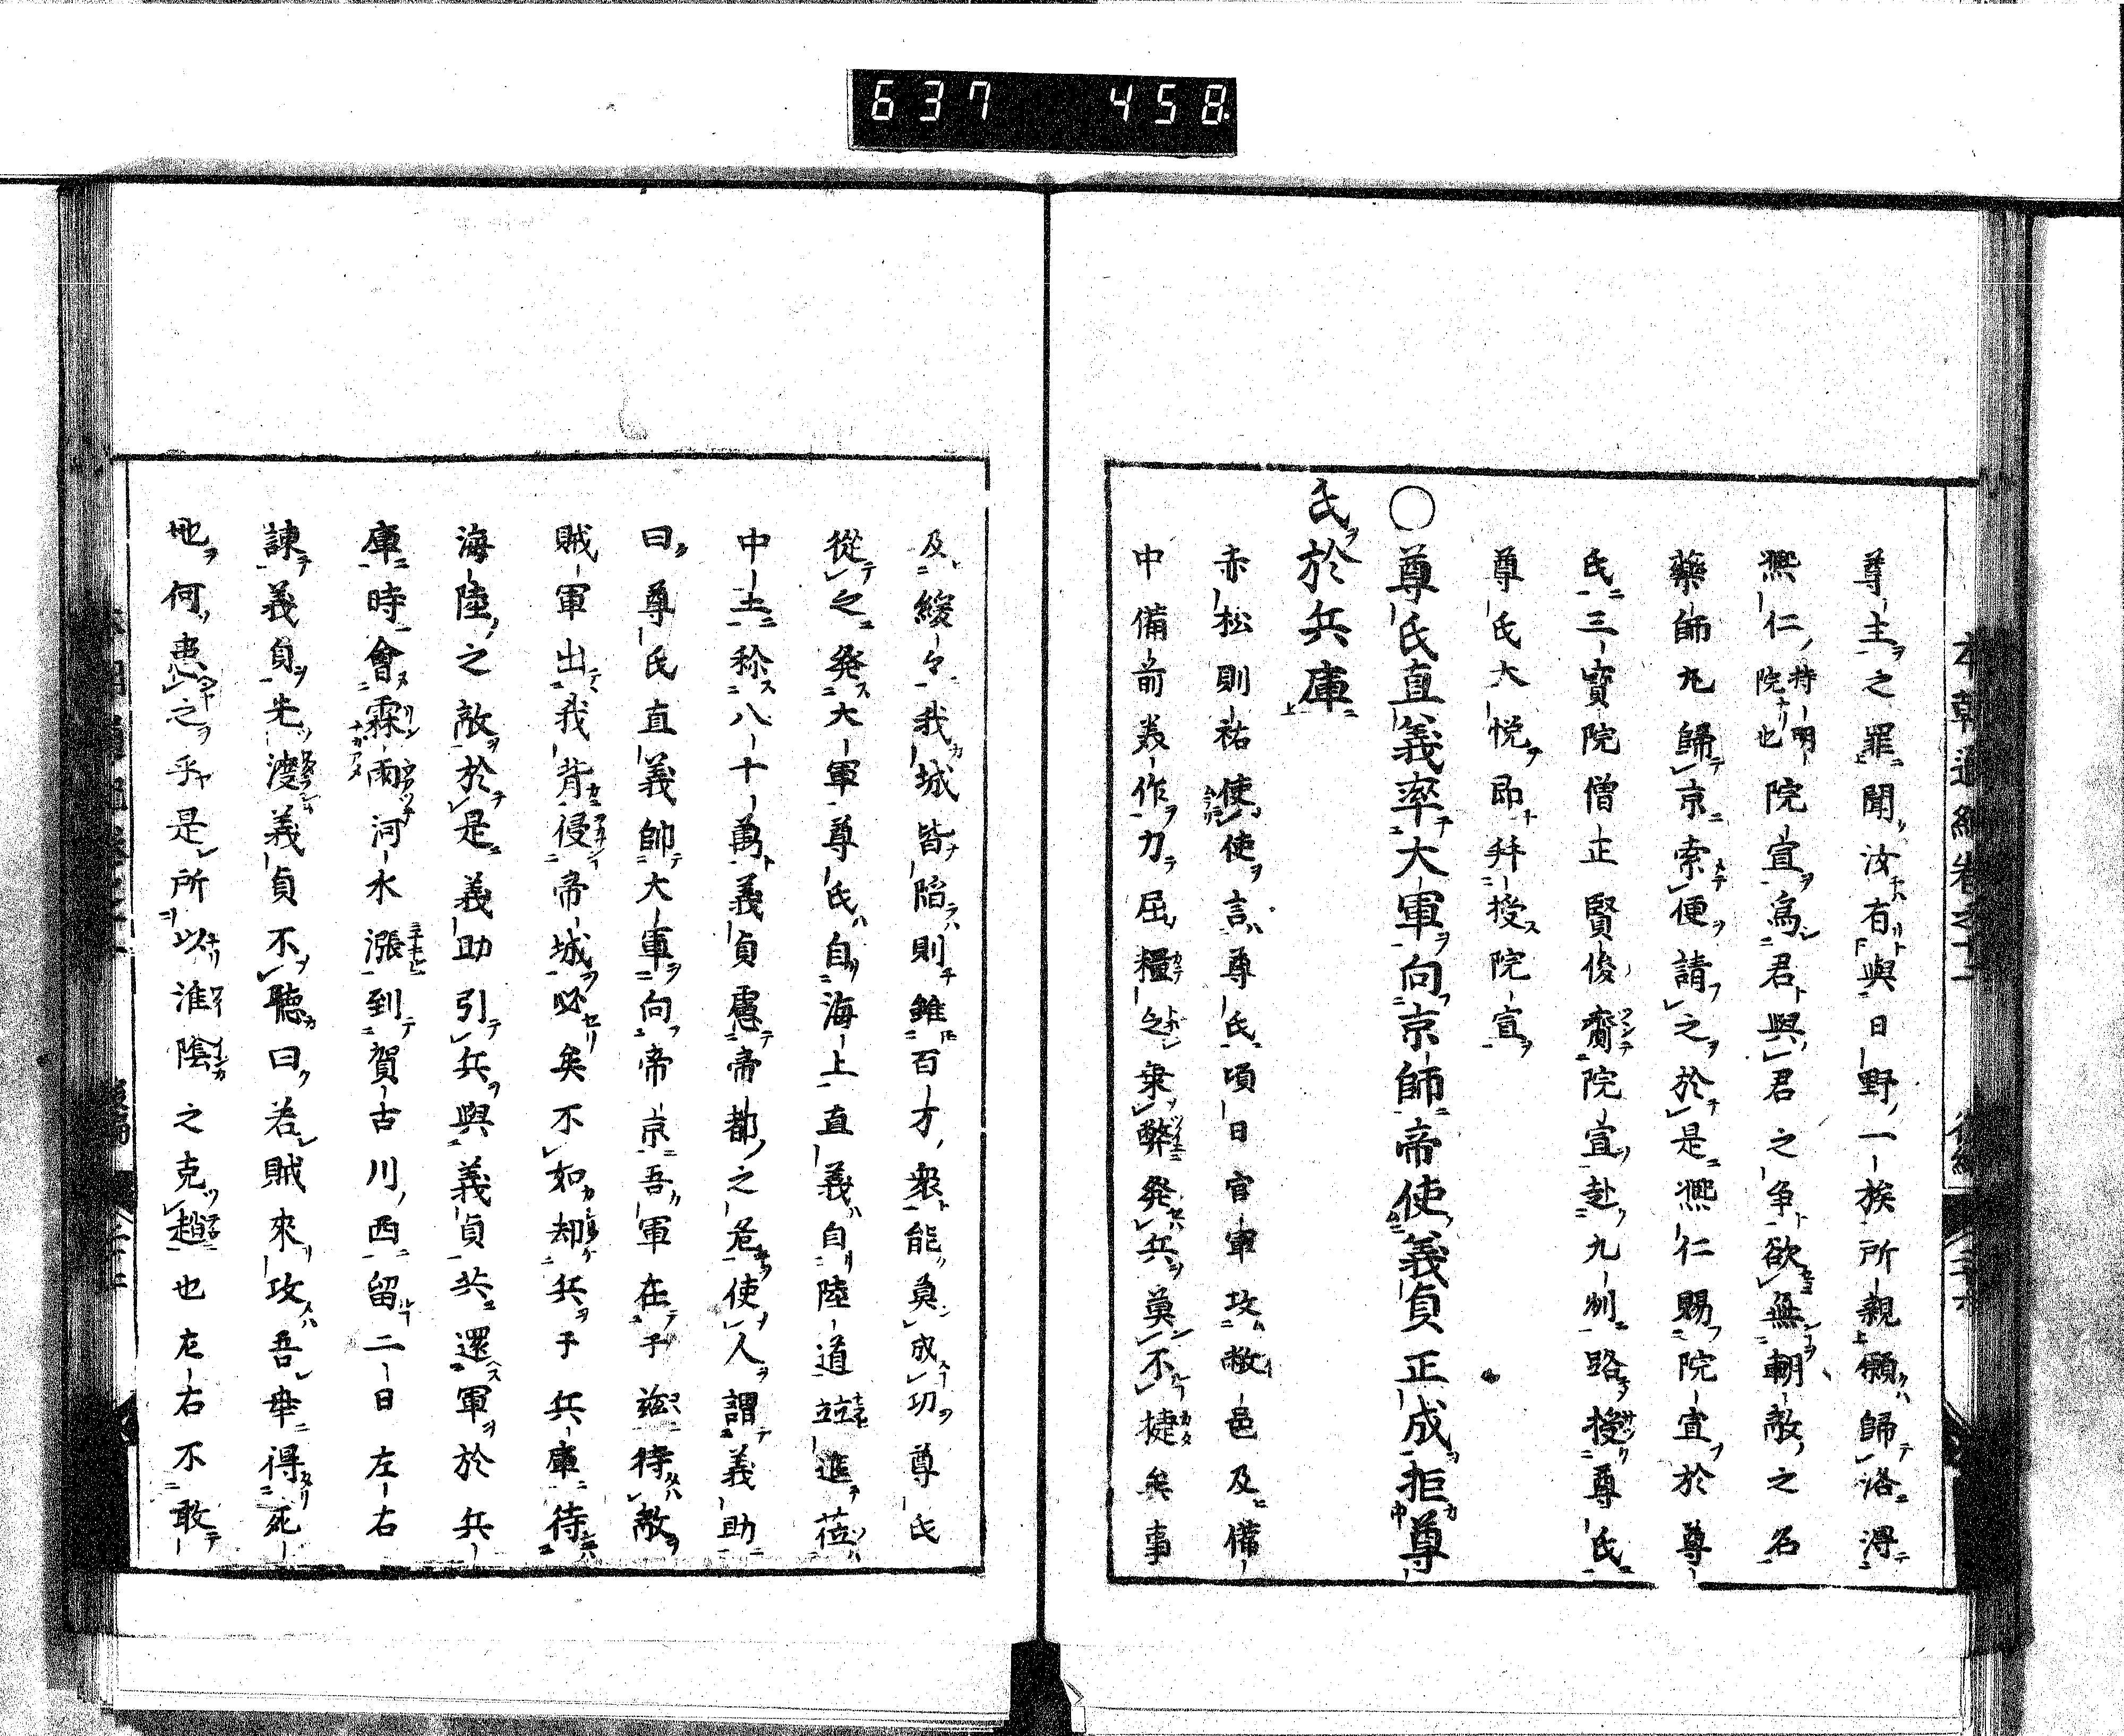 637 458
尊主之罪聞汝有與日野一族所親願歸洛得
熈仁持明院也院宣爲君與君之争欲無朝敵之名
藥師丸歸京索便請之於是熈仁賜院宣於尊
氏三寳院僧正賢俊齎院宣赴九刕路授尊氏
尊氏大悦即拜授院宣
〇尊氏直義率大軍向京師帝使義貞正成拒尊
氏於兵庫
赤松則祐使使言尊氏頃日官軍攻敝邑及備
中備前美作力屈糧乏衆弊発兵莫不捷矣事
及緩々我城皆陷則雖百万衆能莫成功尊氏
從之発大軍尊氏自海上直義自陸道並進莅
中土称八十萬義貞慮帝都之危使人謂義助
曰尊氏直義帥大軍向帝京吾軍在于玆待敵
賊軍出我背侵帝城必矣不如却兵于兵庫待
海陸之敵於是義助引兵與義貞共還軍於兵
庫時會霖雨河水漲到賀古川西留二日左右
諫義貞先渡義貞不聽曰若賊來攻吾軍得死
地何患之乎是所以淮陰之克趙也左右不敢